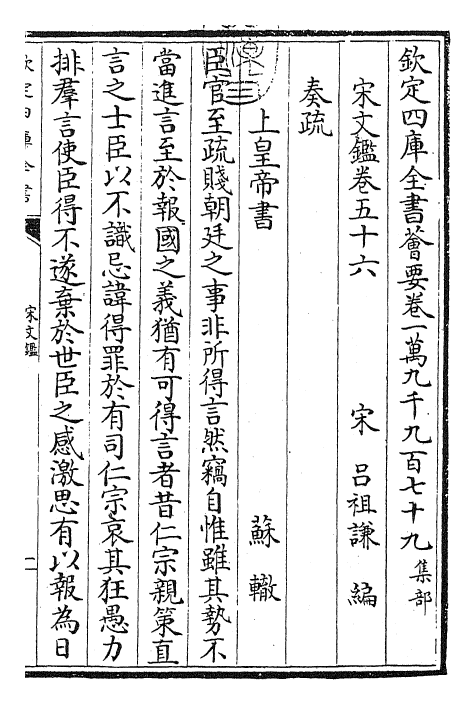 欽定四庫全書薈要卷一萬九千九百七十九 集部
宋文鑑卷五十六
宋 呂祖謙 編
奏疏
上皇帝書
蘇轍
臣官至疏賤朝廷之事非所得言然竊自惟雖其勢不
當進言至於報國之義猶有可得言者昔仁宗親策直
言之士臣以不識忌諱得罪於有司仁宗哀其狂愚力
排羣言使臣得不遂棄於世臣之感激思有以報為日
欽定四庫全書
宋文鑑